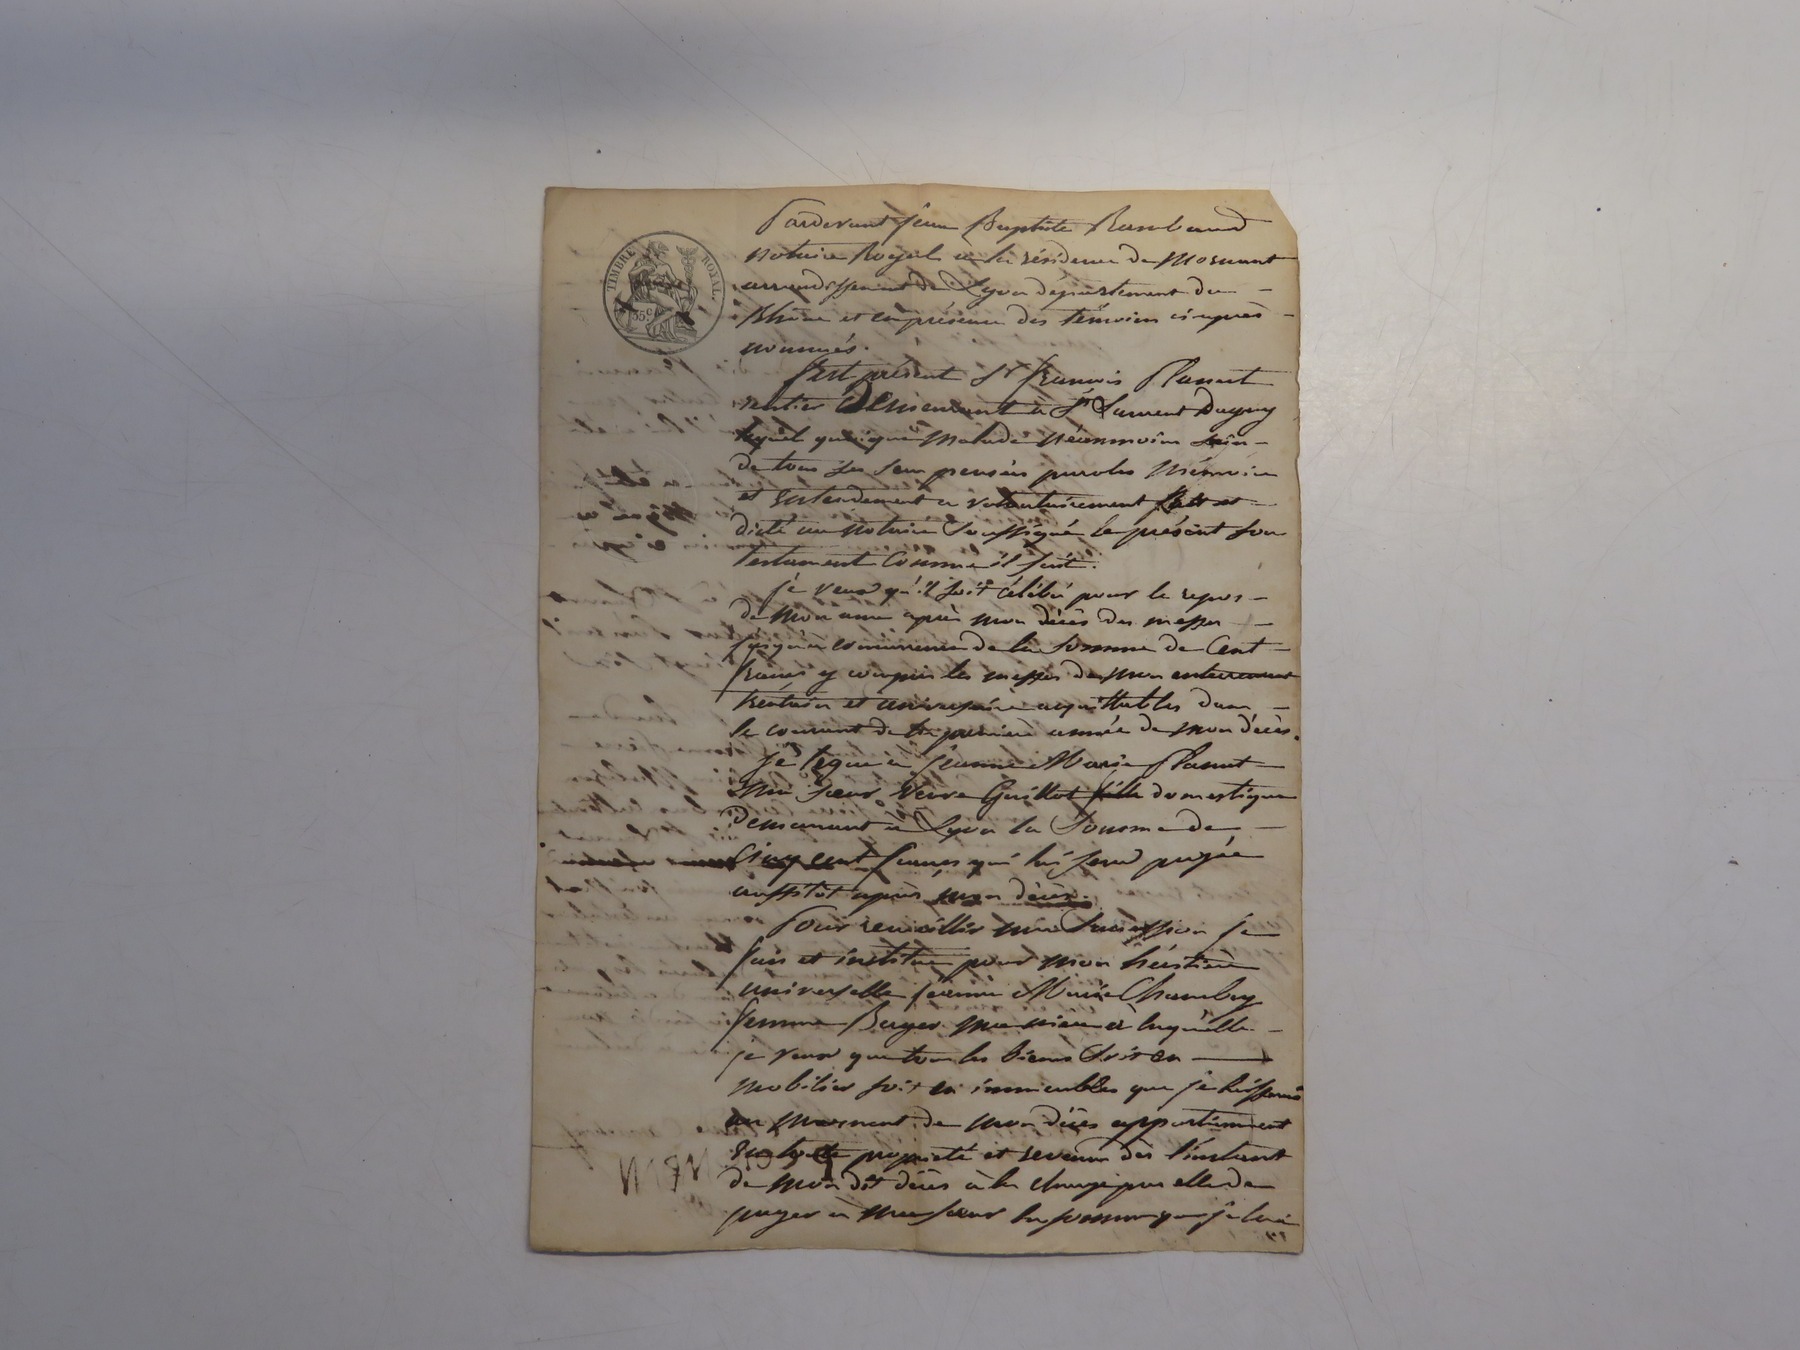 TIMBRE ROYAL
35c
Pardevant Jean Baptiste Rambaud
notaire Royal à la résidence de Mornant
arrondissement de Lyon département du
Rhône et en présence des témoins ci après
nommés.
fut présent Sr François Planut
rentier demeurant à St Laurent Dagny
lequel quoique malade néanmoins sain
de tous ses sens pensées paroles mémoire
et entendement a volontairement fait et
dicté au notaire soussigné le présent son
testament comme il suit.
je veux qu'il soit célébré pour le repos
de mon ame après mon décès des messes
jusqu'a concurrence de la somme de Cent
francs y compris les messes de mon enterrement
trentain et aniversaire acquittables dans
le courant de la première année de mon décès.
je legue à jeanne Marie Planut
ma sœur veuve Guillot fille domestique
demeurant à Lyon la somme de
Cinq cent francs qui lui sera payée
aussitôt après mon décès.
Pour recueillir ma succession je
fais et institue pour mon héritière
universelle jeanne Marie Chambry
femme Berger ma niece à laquelle
je veux que tous les biens soit en
mobilier soit en immeubles que je laisserai
au moment de mon décès appartiennent
en toute propriété et revenu dès l'instant
de mon dit décès à la charge par elle de
payer à ma sœur la somme que je lui